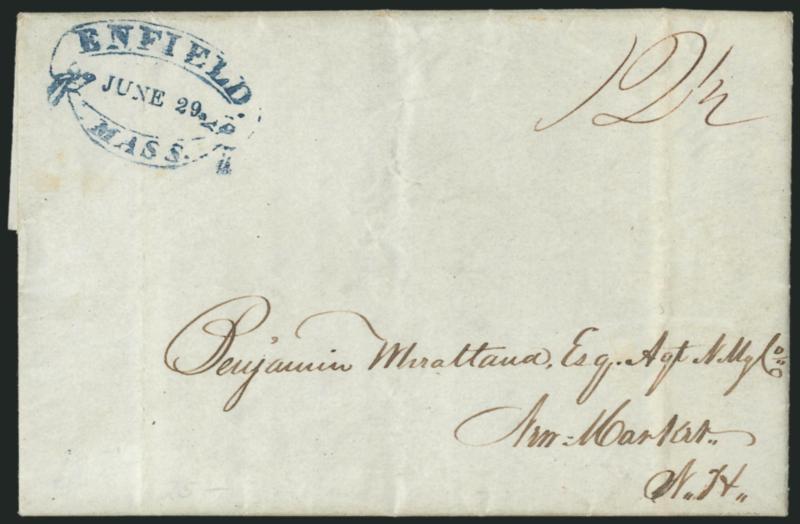 ENFIELD
JUNE 29
MASS.
12½
Benjamin Wheatland, Esq. Agt N. Mg Co
New-Market.
N. H.